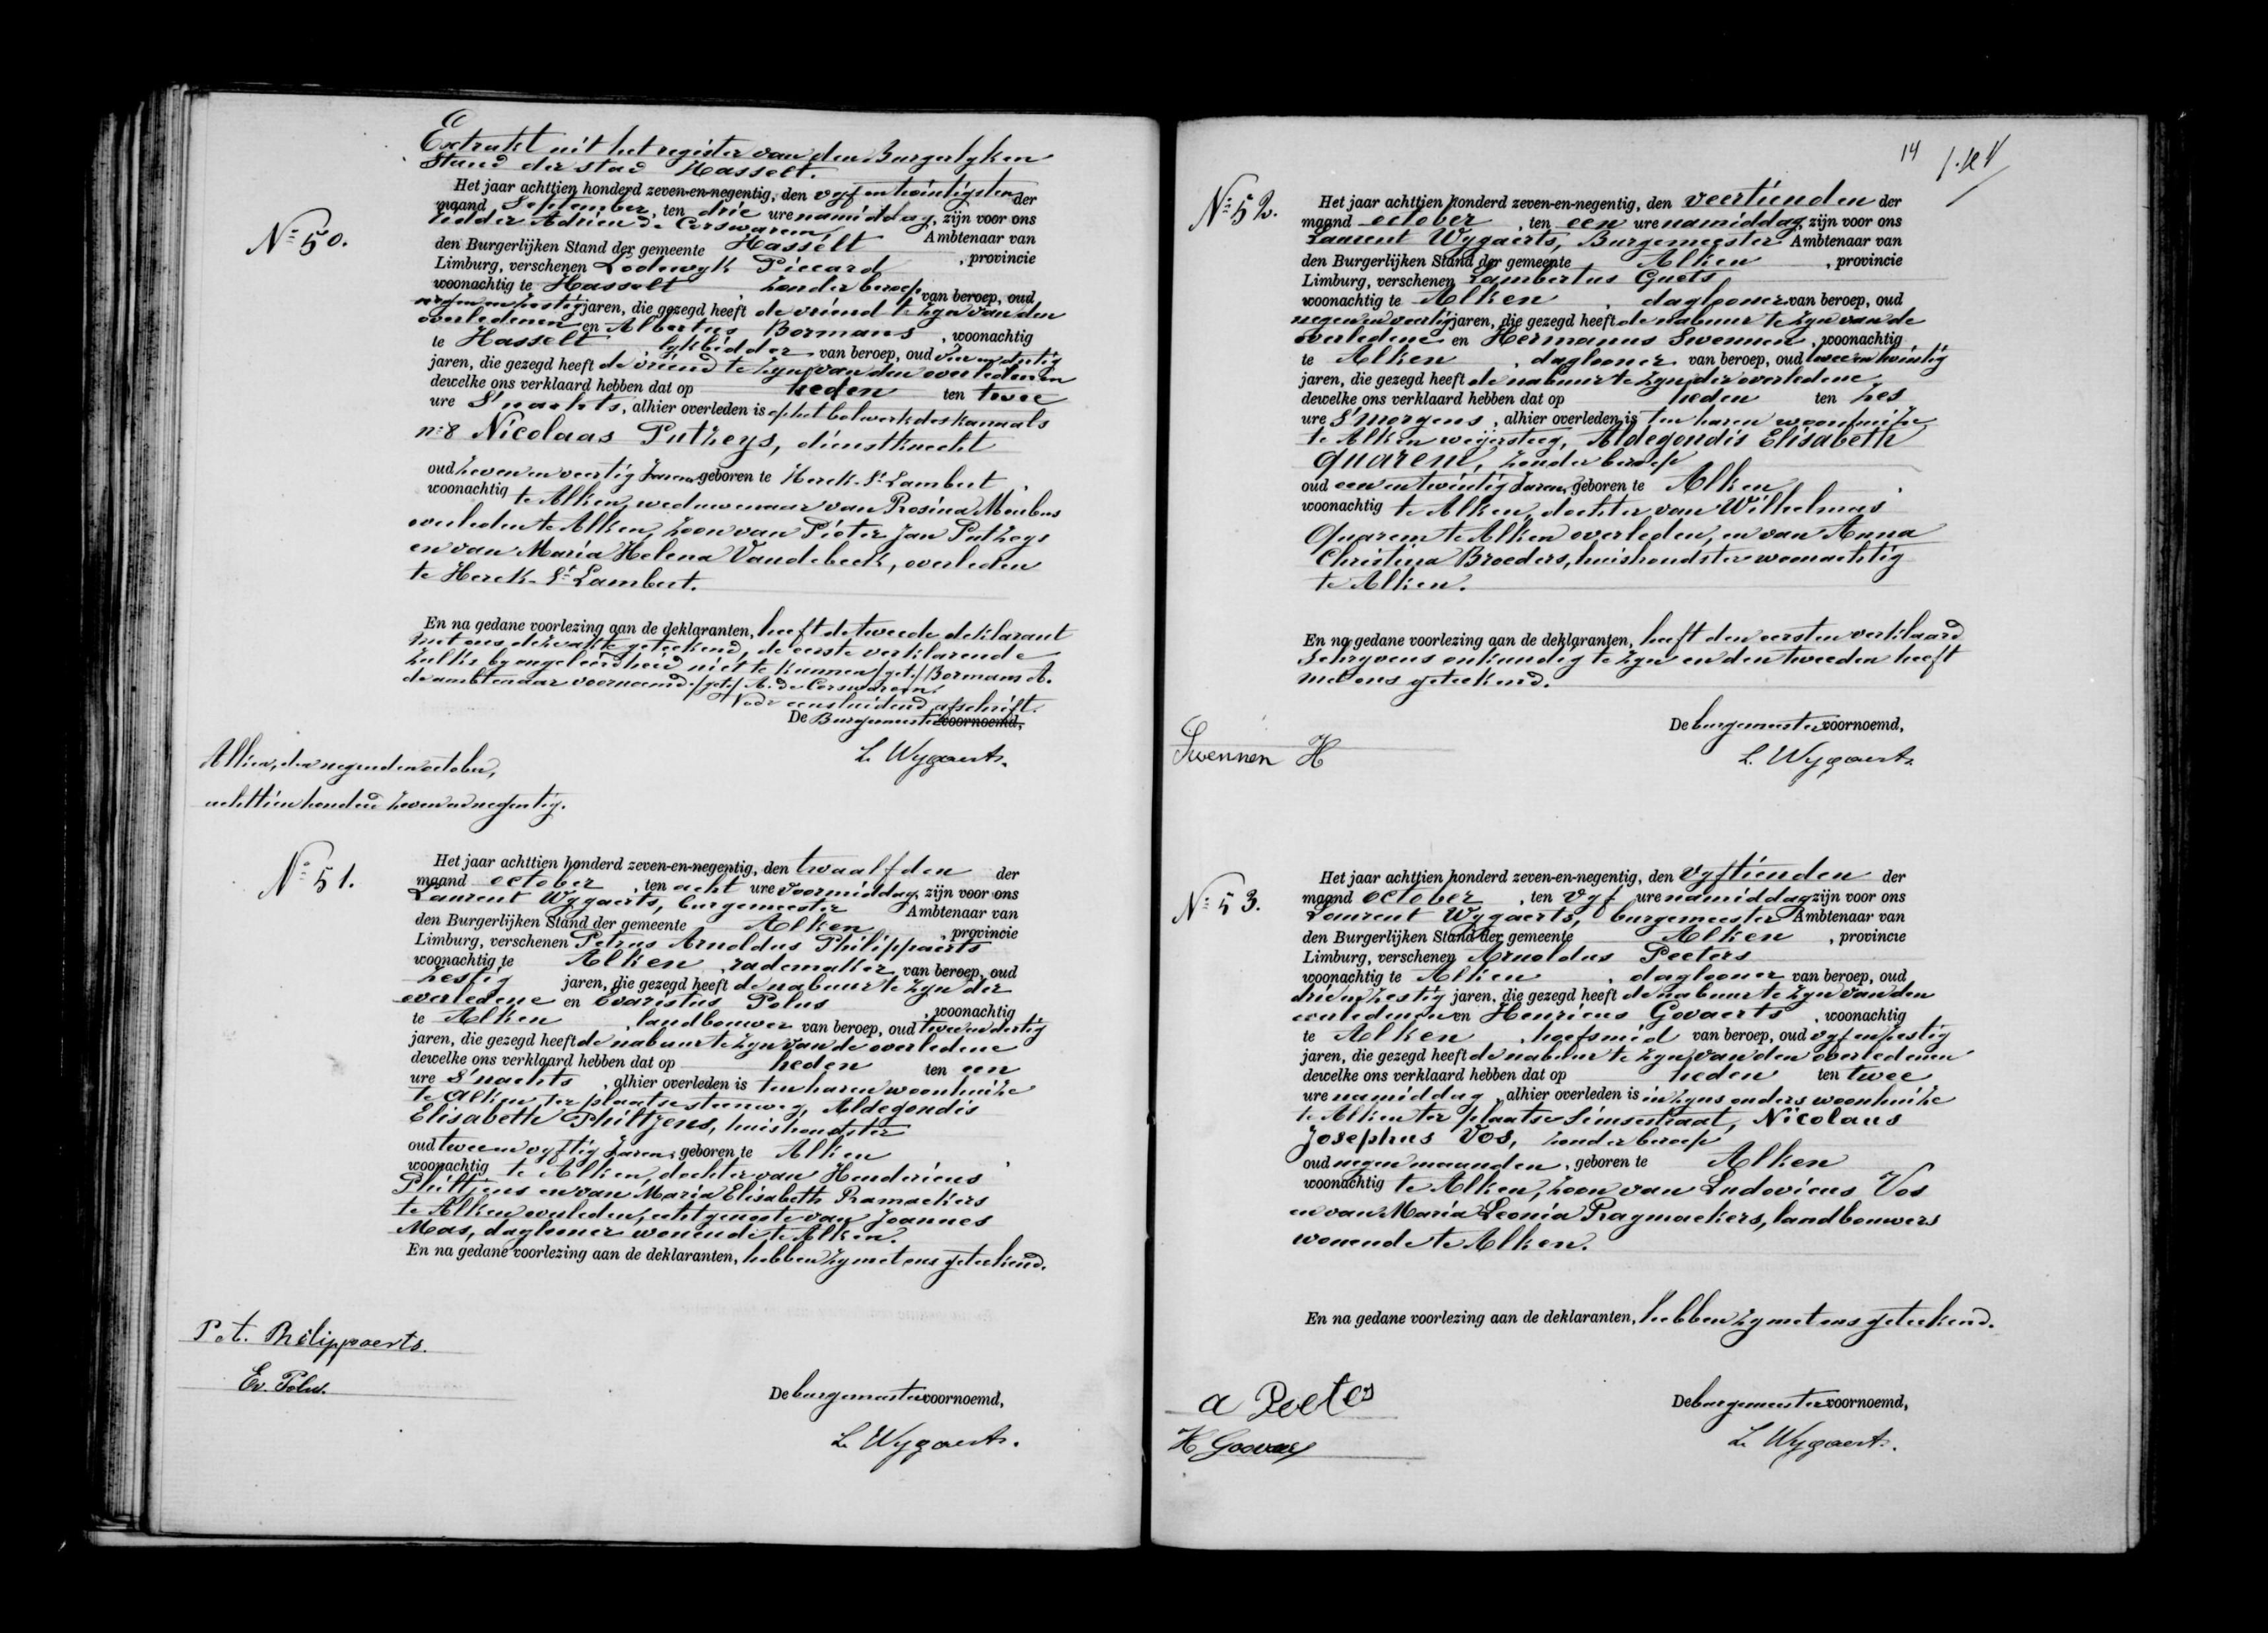 Extrakt uit het register van den Burgerlyken
Stand der stad Hasselt.
Nº 50.
Het jaar achttien honderd zeven-en-negentig, den vyf en twintigsten der
maand September, ten drie ure namiddag, zijn voor ons
ridder Adrien de Corswarem, Ambtenaar van
den Burgerlijken Stand der gemeente Hasselt, provincie
Limburg, verschenen Lodewyk Piccard
woonachtig te Hasselt, zonder beroep van beroep, oud
negen en zestig jaren, die gezegd heeft de vriend te zyn van den
overledenen en Albertus Bormans, woonachtig
te Hasselt lykbidder van beroep, oud vier en dertig
jaren, die gezegd heeft de vriend te zyn van den overledenen
dewelke ons verklaard hebben dat op heden ten twee
ure S'nachts, alhier overleden is op het bolwerk des kanaals
nº 8 Nicolaas Putzeys, dienstknecht
oud zeven en veertig Jaren geboren te Herck-St Lambert,
woonachtig te Alken, weduwenaar van Rosina Moubus
overleden te Alken, zoon van Pieter Jan Putzeys
en van Maria Helena Vandebeek, overleden
te Herck-St Lambert.
En na gedane voorlezing aan de deklaranten, heeft de tweede deklarant
met ons deze akte geteekend, de eerste verklarende
zulks by ongeleerdheid niet te kunnen /get./ Bormans A.
de ambtenaar voornoemd. /get./ A. de Corswarem.
Voor eensluidend afschrift.
De Burgemeester voornoemd,
L. Wygaerts.
Alken, den negenden october,
achttien honderd zeven en negentig.
Nº 51.
Het jaar achttien honderd zeven-en-negentig, den twaalfden der
maand october, ten acht ure voormiddag, zijn voor ons
Laurent Wygaerts, burgemeester Ambtenaar van
den Burgerlijken Stand der gemeente Alken, provincie
Limburg, verschenen Petrus Arnoldus Philippaerts
woonachtig te Alken, rademaker van beroep, oud
zestig jaren, die gezegd heeft de nabuur te zyn der
overledene en Evaristus Polus, woonachtig
te Alken, landbouwer van beroep, oud twee en dertig
jaren, die gezegd heeft de nabuur te zyn van de overledene
dewelke ons verklaard hebben dat op heden ten een
ure S'nachts, alhier overleden is ten haren woonhuize
te Alken ter plaatse steenweg, Aldegondis
Elisabeth Philtjens, huishoudster
oud twee en vyftig Jaren, geboren te Alken,
woonachtig te Alken, dochter van Hendericus
Philtjens en van Maria Elisabeth Ramaekers
te Alken overleden, echtgenoote van Joannes
Mas, daglooner wonende te Alken.
En na gedane voorlezing aan de deklaranten, hebben zy met ons geteekend.
Pet. Philippaerts.
Ev. Polus.
De burgemeester voornoemd,
L. Wygaerts.
14
Nº 52.
Het jaar achttien honderd zeven-en-negentig, den veertienden der
maand october, ten een ure namiddag, zijn voor ons
Laurent Wygaerts, Burgemeester Ambtenaar van
den Burgerlijken Stand der gemeente Alken, provincie
Limburg, verschenen Lambertus Guets
woonachtig te Alken, daglooner van beroep, oud
negen en veertig jaren, die gezegd heeft de nabuur te zyn van de
overledene en Hermanus Swennen, woonachtig
te Alken, daglooner van beroep, oud twee en twintig
jaren, die gezegd heeft de nabuur te zyn der overledene
dewelke ons verklaard hebben dat op heden ten zes
ure S'morgens, alhier overleden is ten haren woonhuize
te Alken weyersteeg, Aldegondis Elisabeth
Quarem, zonder beroep
oud een en twintig Jaren, geboren te Alken,
woonachtig te Alken, dochter van Wilhelmus
Quarem te Alken overleden, en van Anna
Christina Broeders, huishoudster woonachtig
te Alken.
En na gedane voorlezing aan de deklaranten, heeft den eersten verklaard
Schryvens onkundig te zyn en den tweeden heeft
met ons geteekend.
De burgemeester voornoemd,
Swennen H
L. Wygaerts.
Nº 53.
Het jaar achttien honderd zeven-en-negentig, den vyftienden der
maand october, ten vyf ure namiddag zijn voor ons
Laurent Wygaerts, burgemeester Ambtenaar van
den Burgerlijken Stand der gemeente Alken, provincie
Limburg, verschenen Arnoldus Peeters
woonachtig te Alken, daglooner van beroep, oud
drie en zestig jaren, die gezegd heeft de nabuur te zyn van den
overledenen en Henricus Govaerts, woonachtig
te Alken, hoefsmid van beroep, oud vyf en zestig
jaren, die gezegd heeft de nabuur te zyn van den overledenen
dewelke ons verklaard hebben dat op heden ten twee
ure namiddag, alhier overleden is in zyns ouders woonhuize
te Alken ter plaatse Simsestraat, Nicolaus
Josephus Vos, zonder beroep
oud negen maanden, geboren te Alken
woonachtig te Alken, zoon van Ludovicus Vos
en van Maria Leonia Ragmaekers, landbouwers
wonende te Alken.
En na gedane voorlezing aan de deklaranten, hebben zy met ons geteekend.
a Peeters
H Goovaerts
De burgemeester voornoemd,
L. Wygaerts.